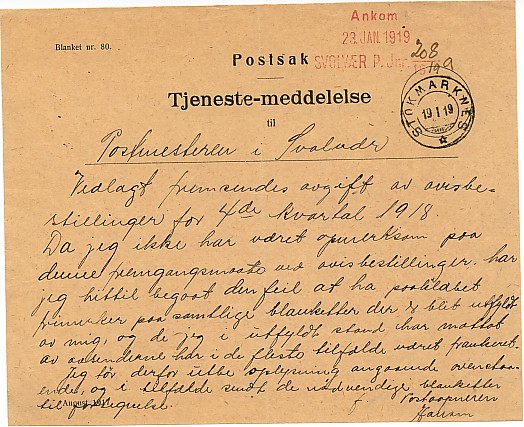 Ankom
23. JAN. 1919
SVOLVÆR P.
208
19
Blanket nr. 80.
Postsak
Tjeneste-meddelelse
til
STOKMARKNES
19 I 19
Postmesteren i Svolvær
Vedlagt fremsendes avgift av avisbe-
stillinger for 4de kvartal 1918.
Da jeg ikke har været opmerksom paa
denne fremgangsmaate ved avisbestillinger, har
jeg hittil begaat den feil at ha paaklæbet
frimerker paa samtlige blanketter der er blit utfyldt
av mig, og de jeg i utfyldt stand har mottat
av avsenderne har i de fleste tilfælde været frankeret.
Jeg tør derfor utbe oplysning angaaende ovenstaa-
ende, og i tilfælde sendt de nødvendige blanketter
til
August 1917
Postaapneren